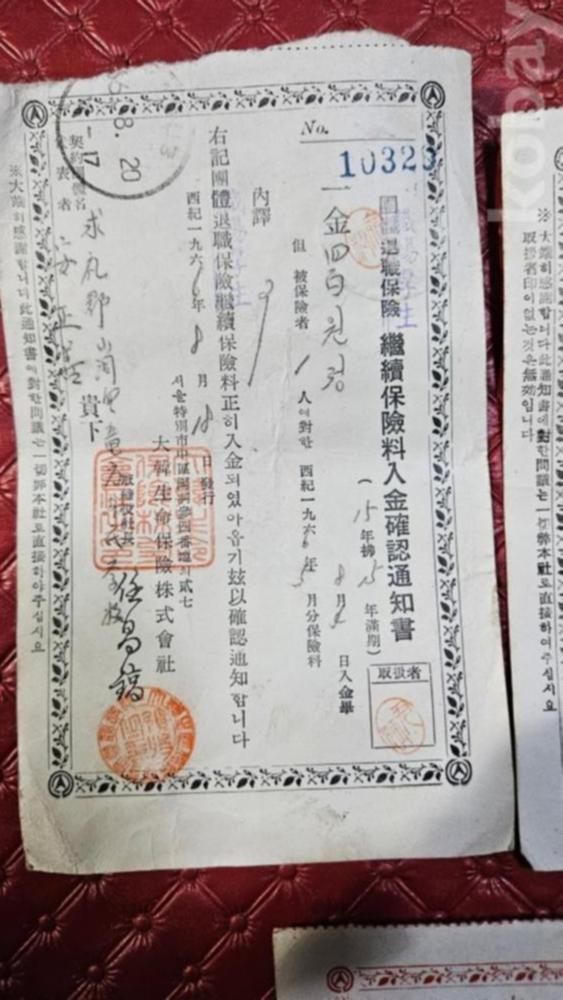 No.
10323
團體退職保險 繼續保險料入金確認通知書
(15年拂 15年滿期)
一金四百원정
但 被保險者 1 人에對한 西紀一九六6年 5月分保險料
8月4日入金畢
取扱者
內譯
右記團體退職保險繼續保險料正히入金되었아옵기玆以確認通知합니다
西紀一九六6年 8月18日發行
서울特別市中區
大韓生命保險株式會社
任昌鎬
契約團體名
代表者
求禮郡山洞
貴下
※大端히感謝합니다此通知書에對한問議는一切弊本社로直接하여주십시요
8. 20
-17
※大端히感謝합니다此通知書에對한問議는一切弊本社로直接하여주십시요
取扱者印이없는것은無效입니다
kobay